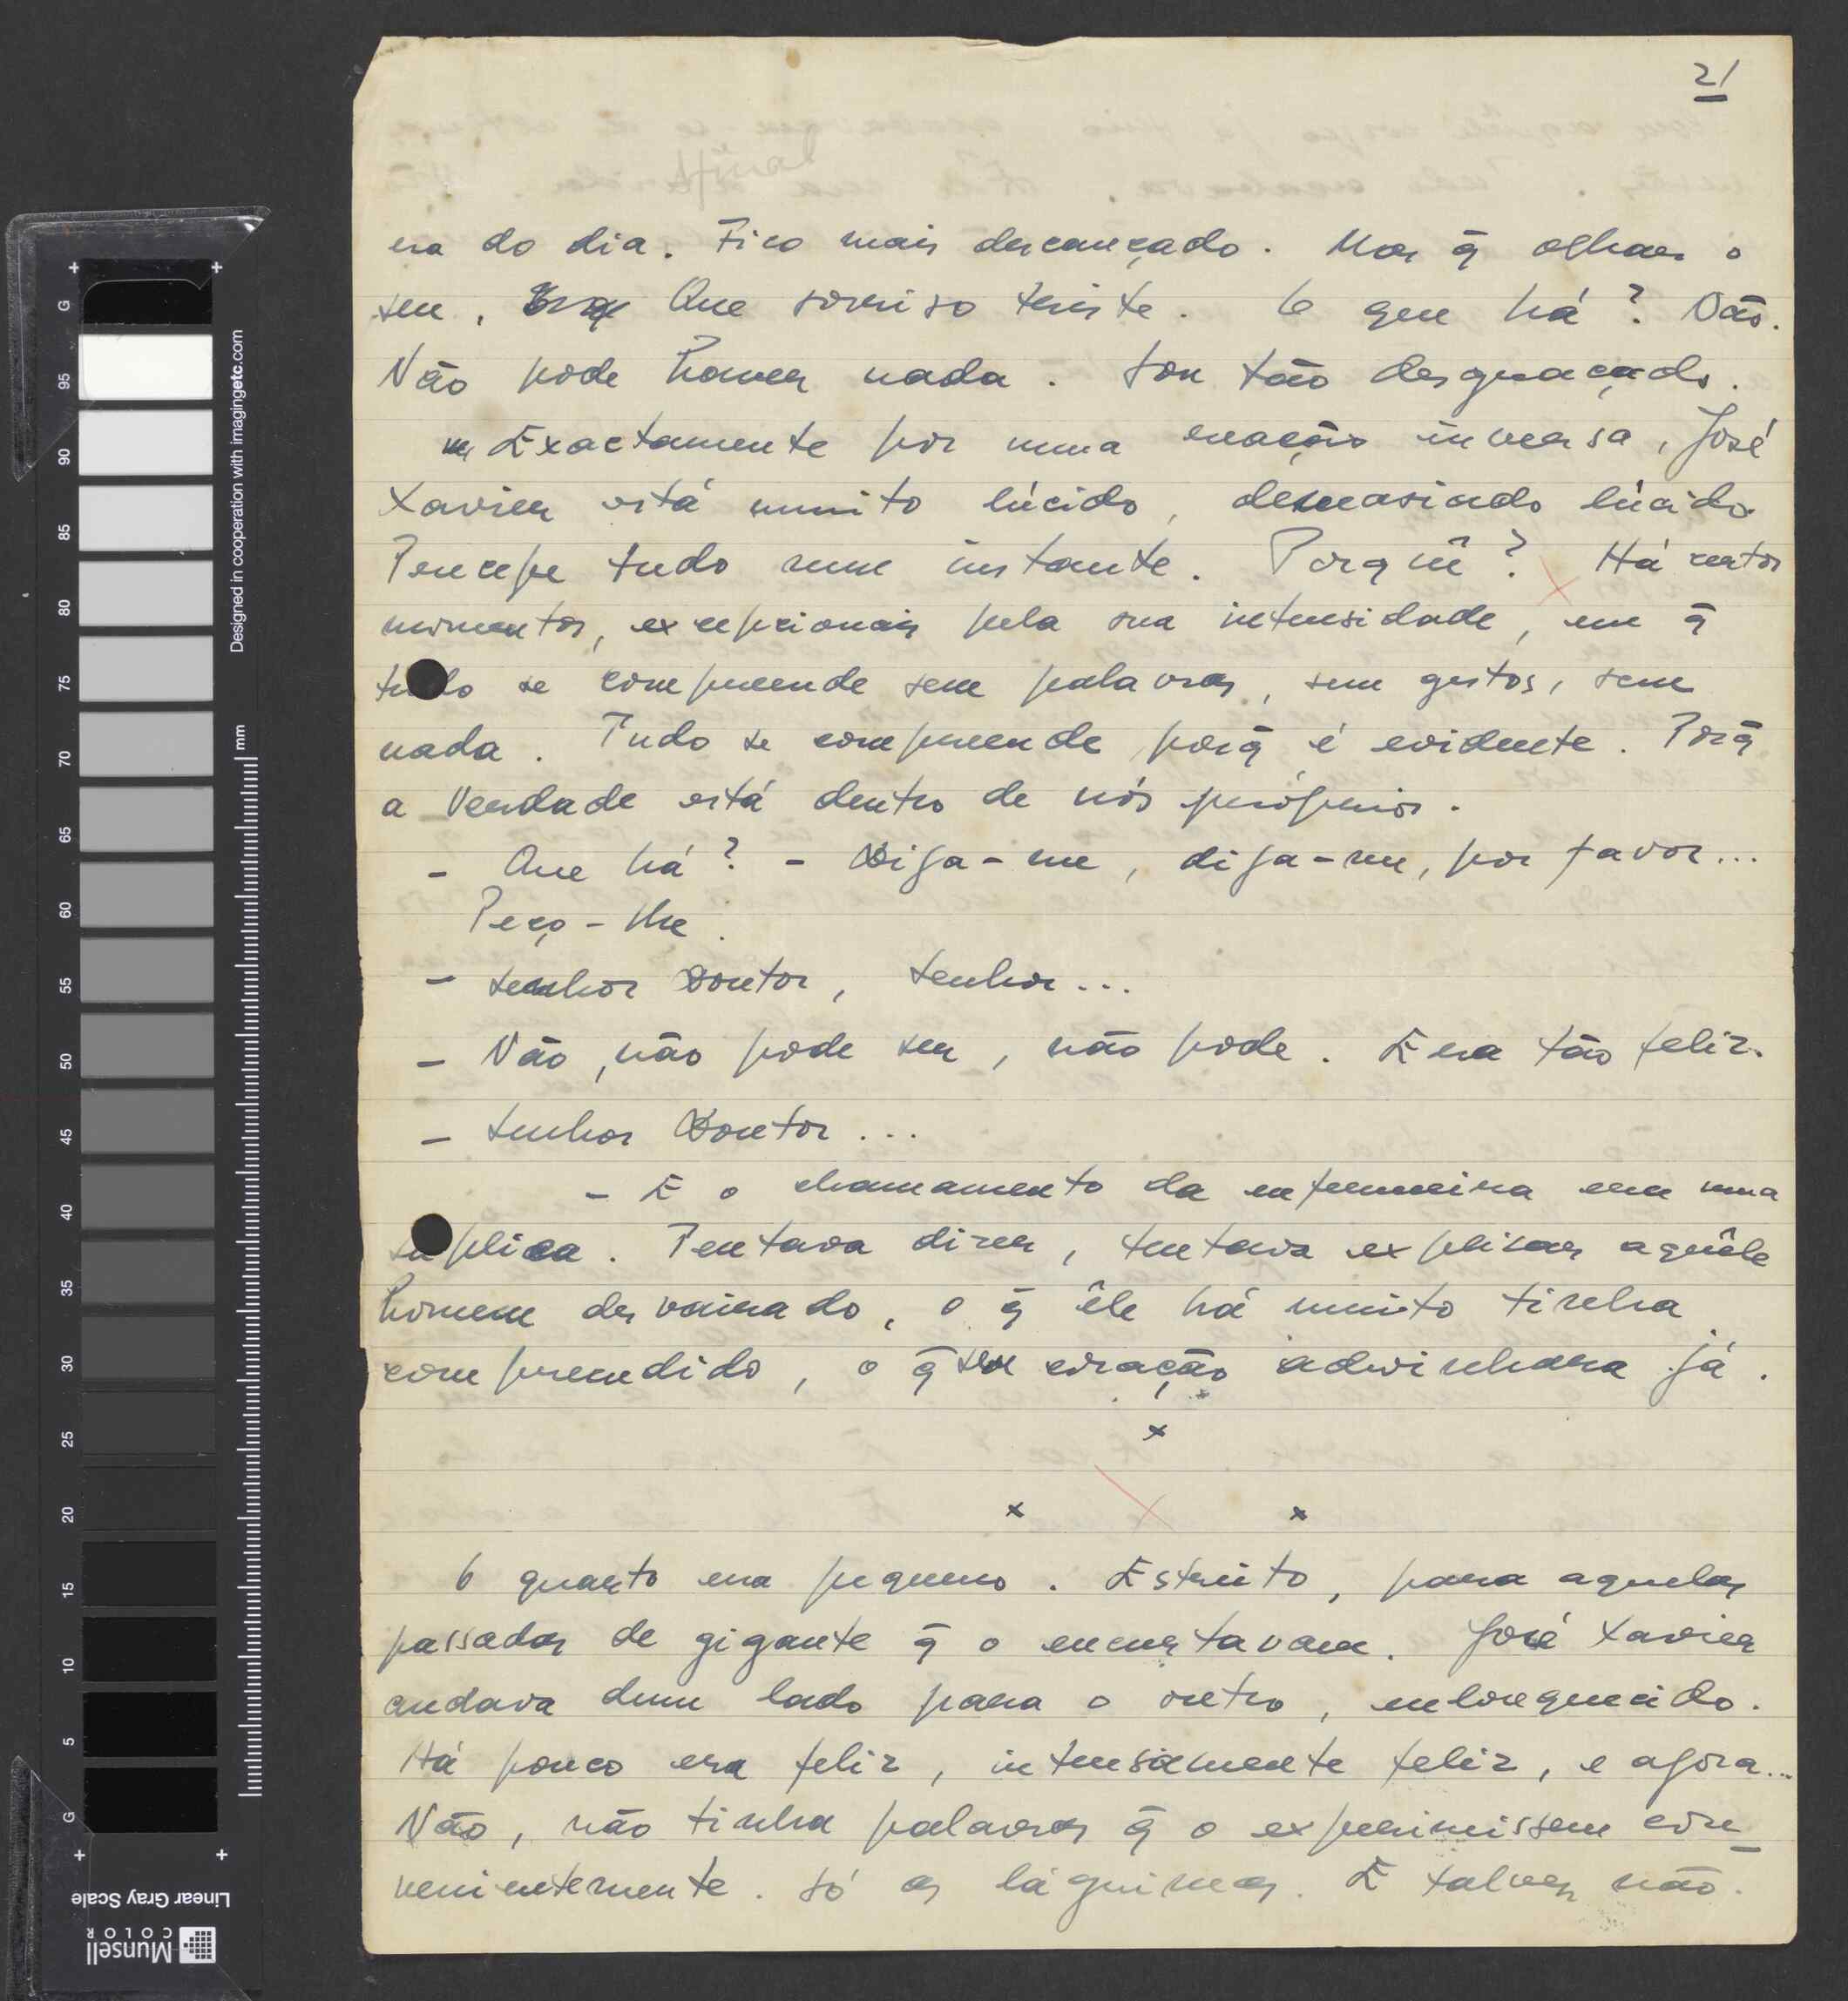 21
era do dia. Fico mais descançado. Mas q̃ olhar o
seu, Que sorriso triste. O que há? Não.
Não pode haver nada. Sou tão desgraçado.
Exactamente por uma reação inversa, José
Xavier está muito lúcido, demasiado lúcido.
Percepe tudo num instante. Porquê? Há certos
momentos, excepcionais pela sua intensidade, em q̃
tudo se compreende sem palavras, sem gestos, sem
nada. Tudo se compreende porq̃ é evidente. Porq̃
a Verdade está dentro de nós próprios.
- Que há? - Diga-me, diga-me, por favor...
Peço-lhe.
- Senhor Doutor, Senhor...
- Não, não pode ser, não pode. Era tão feliz.
- Senhor Doutor...
- E o chamamento da enfermeira era uma
súplica. Tentava dizer, tentava explicar aquêle
homem desvairado, o q̃ êle há muito tinha
compreendido, o q̃ seu coração adivinhara já.
x
x x x
O quarto era pequeno. Estreito, para aquelas
passadas de gigante q̃ o encurtavam. José Xavier
andava dum lado para o outro, enlouquecido.
Há pouco era feliz, intensamente feliz, e agora...
Não, não tinha palavras q̃ o exprimissem con-
venientemente. Só as lágrimas. E talvez não.
Designed in cooperation with imagingetc.com
mm
G 95 90 85 80 75 70 65 60 55 50 45 40 35 30 25 20 15 10 5 G
Linear Gray Scale
Munsell
COLOR